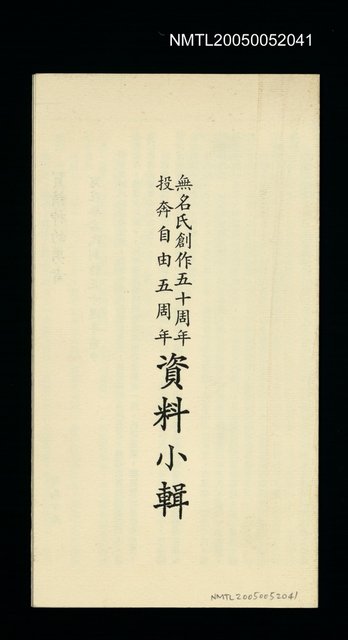 NMTL20050052041
無名氏創作五十周年
投奔自由五周年
資料小輯
NMTL20050052041